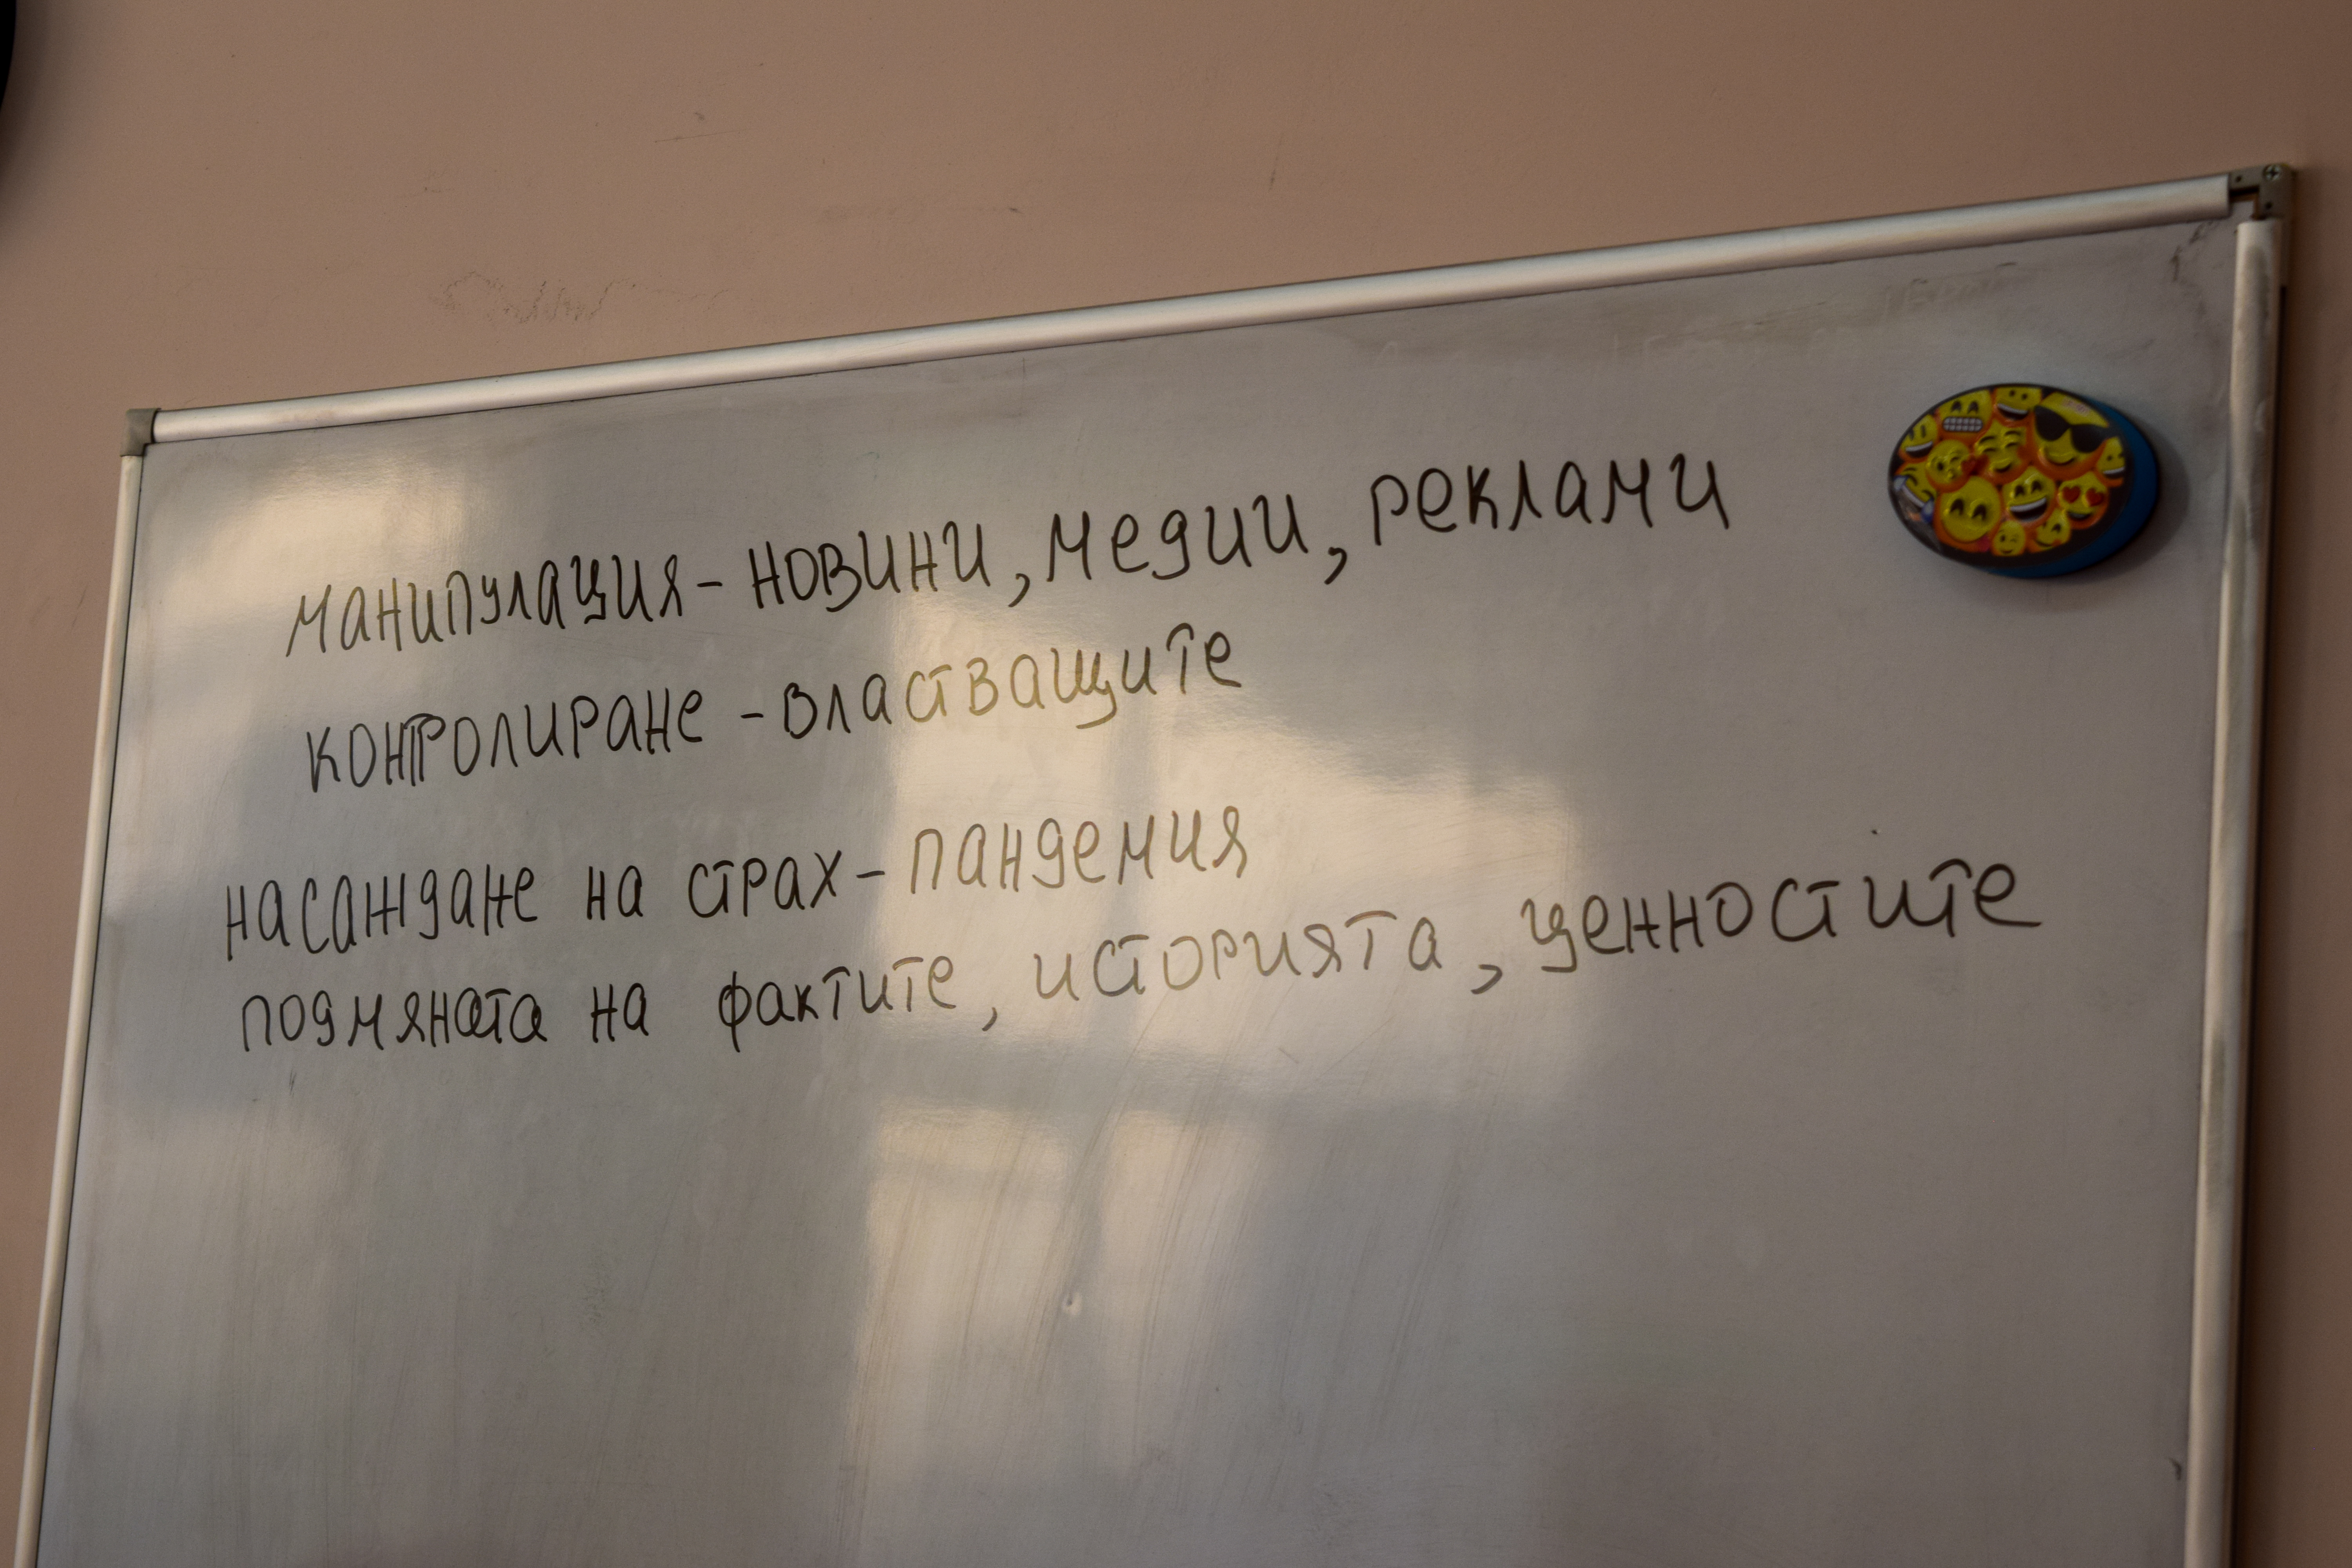 манипулация - новини, медии, реклами
контролиране - властващите
насаждане на страх - пандемия
подмяната на фактите, историята, ценностите